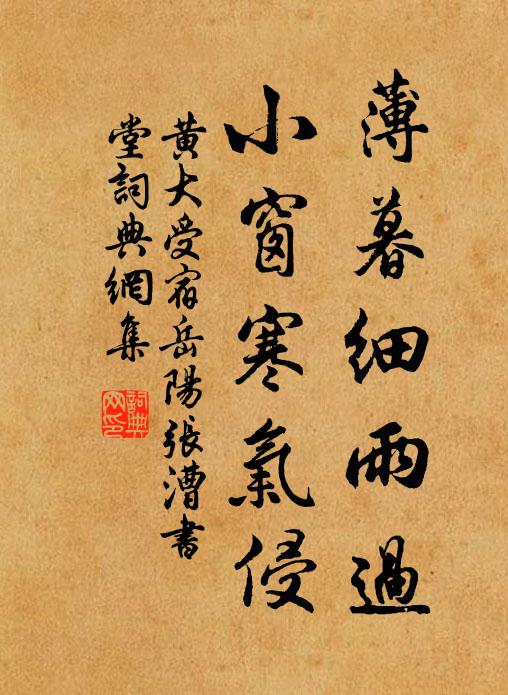 薄暮細雨過
小窗寒氣侵
黃大受宿岳陽張漕書
堂詞典網集
詞典網印